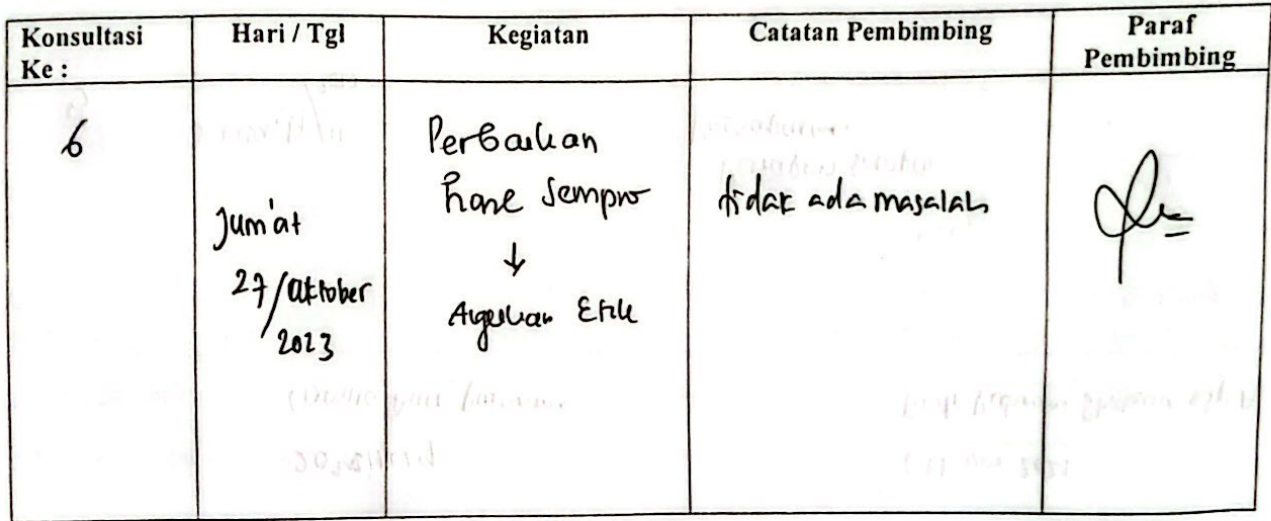 Konsultasi Ke :
Hari / Tgl
Kegiatan
Catatan Pembimbing
Paraf Pembimbing
6
Jum'at
27/Oktober
2023
Perbaikan
Sempro
↓
Ajukan Etik
tidak ada masalah